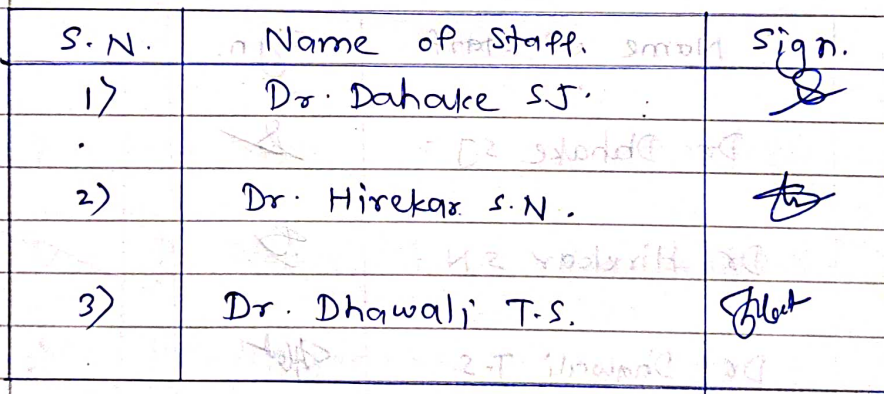 S. N. Name of Staff. Sign.
1) Dr. Dahake S.J.
2) Dr. Hirekar S.N.
3) Dr. Dhawali T.S.